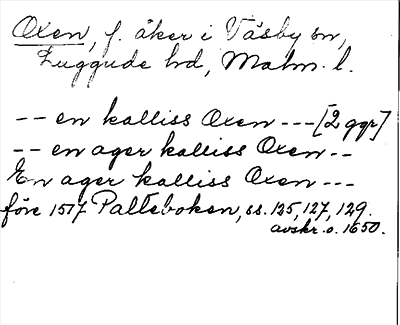 Oxen, f. åker i Väsby sn,
Luggude hd, Malm. l.
-- en kalliss Oxen --- [2 ggr]
-- en ager kalliss Oxen --
En ager kalliss Oxen ---
före 1517 Palteboken, ss. 125, 127, 129.
avskr. o. 1650.